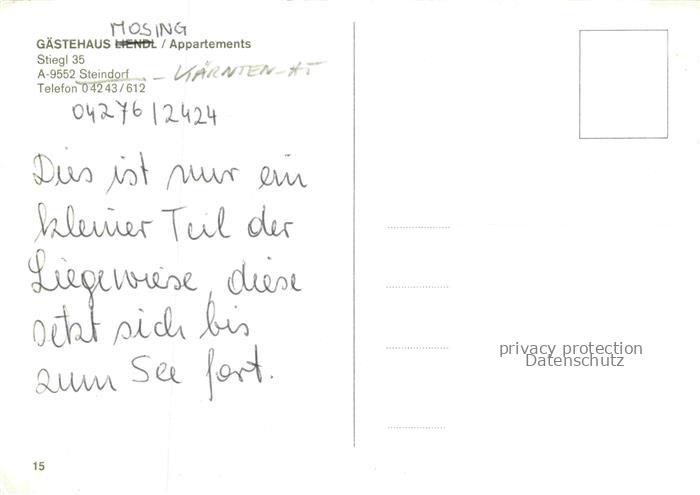 MOSING
GÄSTEHAUS LIENDL / Appartements
Stiegl 35
A-9552 Steindorf - KÄRNTEN-AT
Telefon 0 42 43 / 612
04276/2424
Dies ist nur ein
kleiner Teil der
Liegewiese, diese
setzt sich bis
zum See fort.
15
privacy protection
Datenschutz